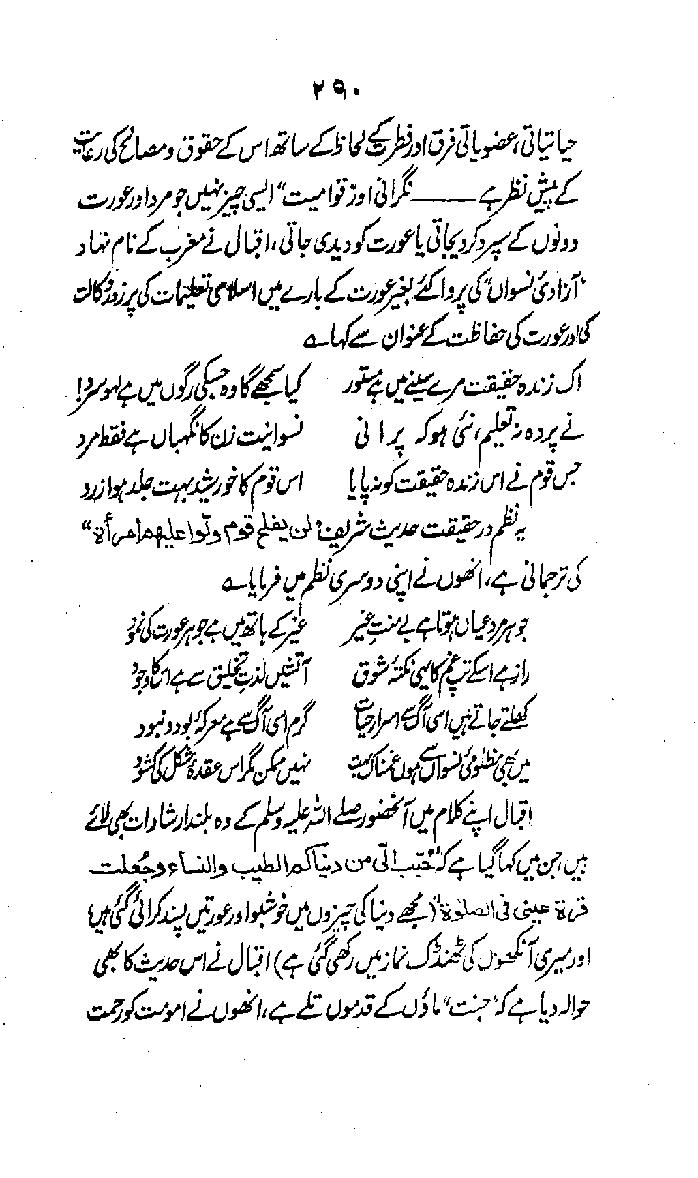 ۲۹۰
حیاتیاتی، عضویاتی فرق اور فطرت کے لحاظ کے ساتھ اس کے حقوق و مصالح کی رعایت
کے پیش نظر ہے ——— نگرانی اور قوامیت" ایسی چیز نہیں جو مرد اور عورت
دونوں کے سپرد کر دیجاتی یا عورت کو دیدی جاتی، اقبال نے مغرب کے نام نہاد
"آزادیٔ نسواں" کی پروا کئے بغیر عورت کے بارے میں اسلامی تعلیمات کی پر زور وکالت
کی اور عورت کی حفاظت کے عنوان سے کہا ہے
اک زندہ حقیقت مرے سینے میں ہے مستور کیا سمجھے گا وہ جسکی رگوں میں ہے لہو سرد!
نے پردہ نہ تعلیم، نئی ہو کہ پرانی نسوانیت زن کا نگہباں ہے فقط مرد
جس قوم نے اس زندہ حقیقت کو نہ پایا اس قوم کا خورشید بہت جلد ہوا زرد
یہ نظم در حقیقت حدیث شریف: لن يفلح قوم ولّوا عليهم امرأة"
کی ترجمانی ہے، انھوں نے اپنی دوسری نظم میں فرمایا ہے
جوہر مرد عیاں ہوتا ہے بے منت غیر غیر کے ہاتھ میں ہے جوہر عورت کی نمود
راز ہے اسکے تپ غم کا یہی نکتۂ شوق آتشیں لذت تخلیق سے ہے اس کا وجود
کھلتے جاتے ہیں اسی آگ سے اسرار حیات گرم اسی آگ سے ہے معرکۂ بود و نبود
میں بھی مظلومیٔ نسواں سے ہوں غمناک بہت نہیں ممکن مگر اس عقدۂ مشکل کی کشود
اقبال اپنے کلام میں آنحضور صلے اللہ علیہ وسلم کے وہ بلند ارشادات بھی لائے
ہیں جن میں کہا گیا ہے کہ "حبّب الیّ من دنیاکم الطیب والنساء وجعلت
قرة عینی فی الصلوٰة" (مجھے دنیا کی چیزوں میں خوشبو اور عورتیں پسند کرائی گئی ہیں
اور میری آنکھوں کی ٹھنڈک نماز میں رکھی گئی ہے) اقبال نے اس حدیث کا بھی
حوالہ دیا ہے کہ "جنت" ماؤں کے قدموں تلے ہے، انھوں نے امومت کو رحمت